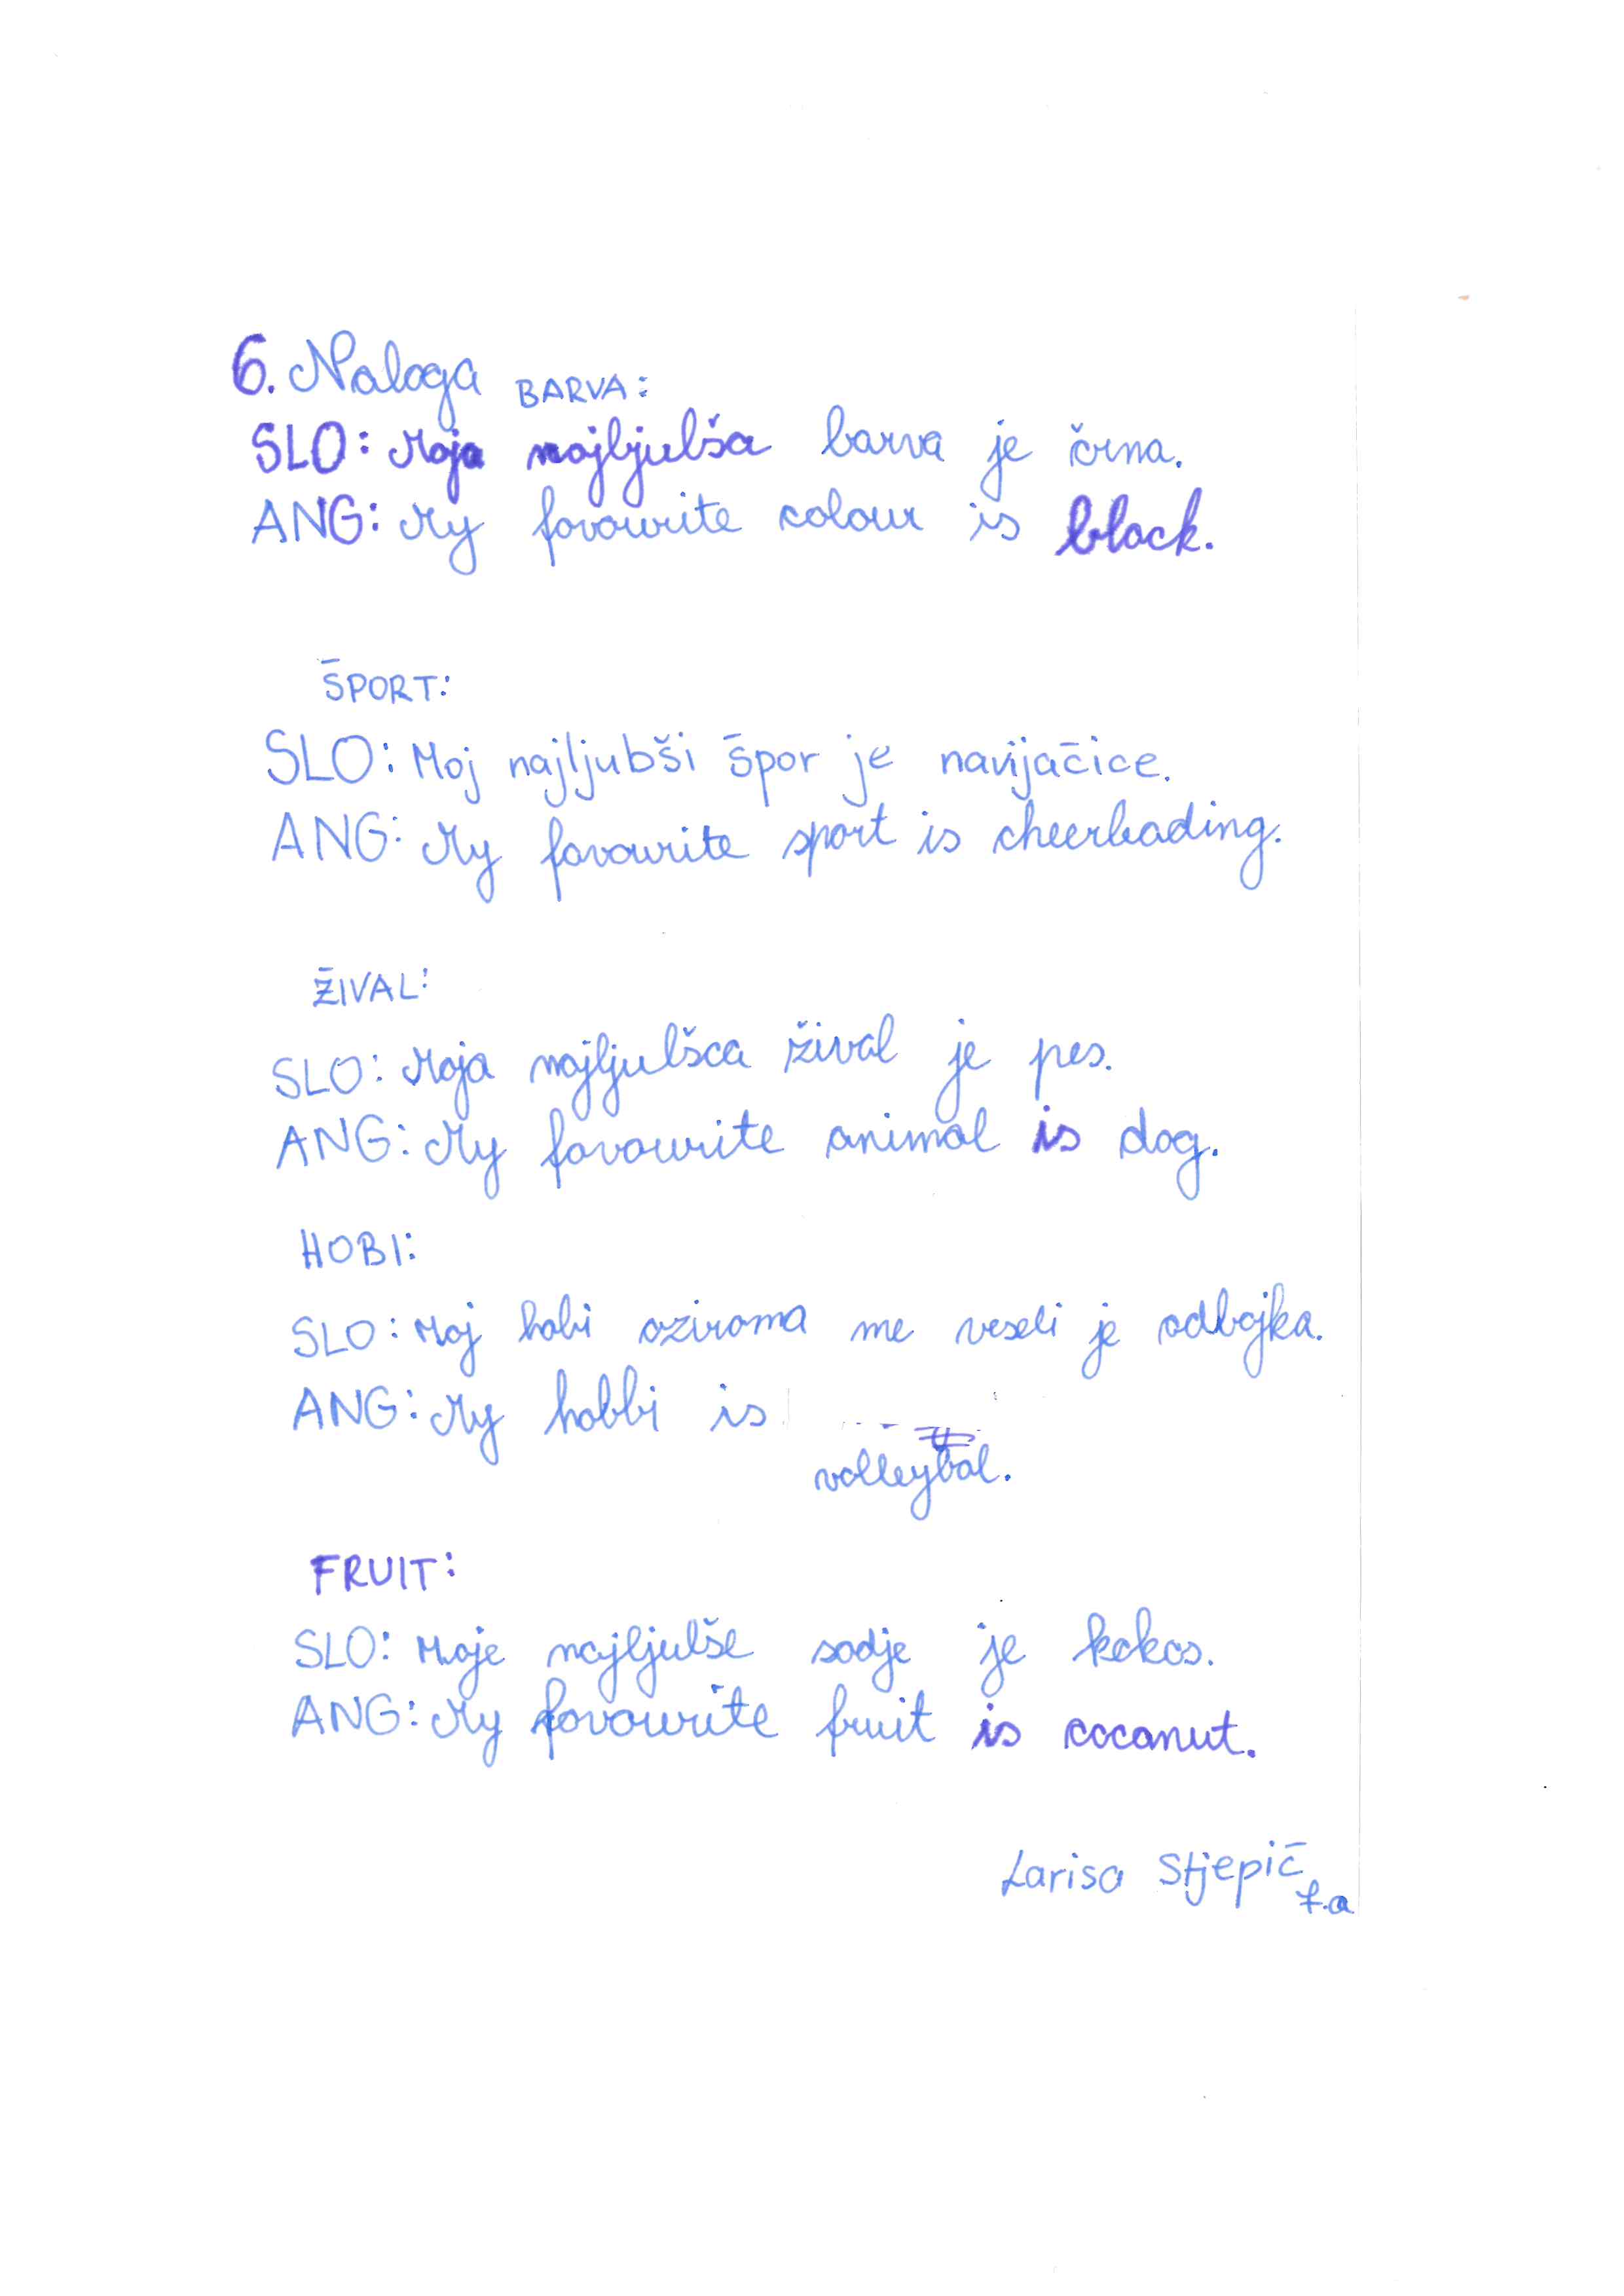 6. Naloga BARVA:
SLO: Moja najljubša barva je črna.
ANG: My favourite colour is black.
ŠPORT:
SLO: Moj najljubši špor je navijačice.
ANG: My favourite sport is cheerleading.
ŽIVAL:
SLO: Moja najljubšca žival je pes.
ANG: My favourite animal is dog.
HOBI:
SLO: Moj hobi oziroma me veseli je odbojka.
ANG: My hobbi is
volleybal.
FRUIT:
SLO: Moje najljubše sadje je kokos.
ANG: My favourite fruit is coconut.
Larisa Stjepič
7.a